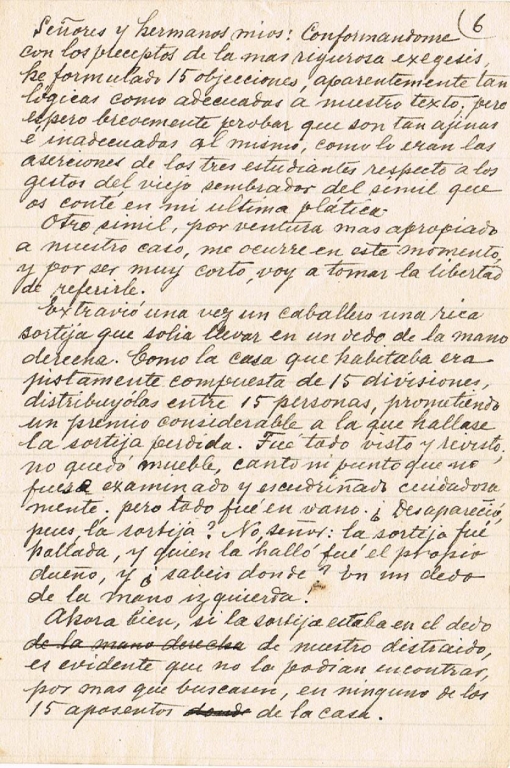 (6
Señores y hermanos mios: Conformandome
con los preceptos de la mas rigurosa exegesis,
he formulado 15 objecciones, aparentemente tan
lógicas como adecuadas a nuestro texto, pero
espero brevemente probar que son tan ajenas
é inadecuadas al mismo, como lo eran las
aserciones de los tres estudiantes respecto a los
gestos del viejo sembrador del simil que
os conté en mi ultima plática.
Otro simil, por ventura mas apropiado
a nuestro caso, me ocurre en este momento,
y por ser muy corto, voy a tomar la libertad
de referirle.
Extravió una vez un caballero una rica
sortija que solia llevar en un dedo de la mano
derecha. Como la casa que habitaba era
justamente compuesta de 15 divisiones,
distribuyólas entre 15 personas, prometiendo
un premio considerable a la que hallase
la sortija perdida. Fué todo visto y revisto,
no quedó mueble, canto ni punto que no
fuese examinado y escudriñado cuidadosa
mente. pero todo fué en vano. ¿Desapareció,
pues, la sortija? No, señor: la sortija fué
hallada, y quien la halló fué el propio
dueño, y ¿sabeis donde? En un dedo
de la mano izquierda!
Ahora bien, si la sortija estaba en el dedo
de la mano derecha de nuestro distraido,
es evidente que no la podian encontrar,
por mas que buscasen, en ninguno de los
15 aposentos donde de la casa.